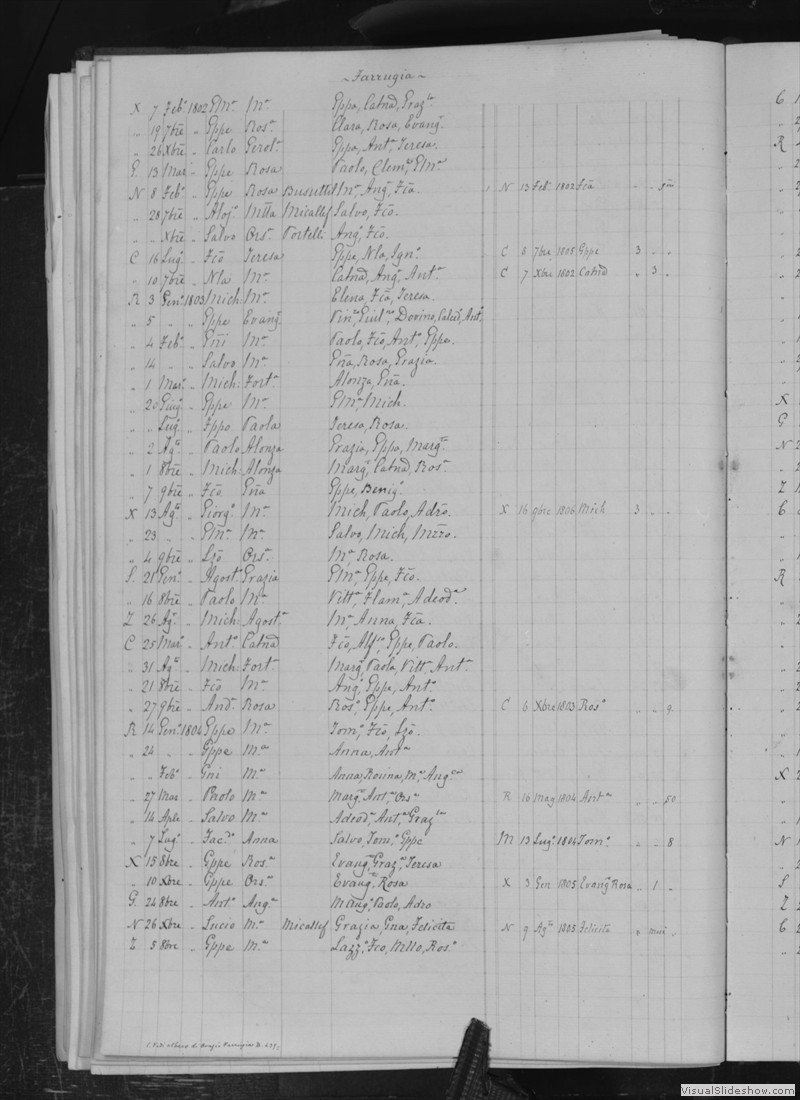 Farrugia
X 7 Feb.o 1802 Gma. Ma. Gppa, Catnd, Graz.a
" 19 7bre " Gppe Ros.a Clara, Rosa, Evang.a
" 26 Xbre " Carlo Gerol.a Gppa, Ant.a Teresa.
G. 13 Mar. " Gppe Rosa Paolo, Clem.e Gma.
N 8 Feb.o " Gppe Rosa Busuttil Ma. Ang.a Fca. N 13 Feb. 1802 Fca
" 28 7bre " Aloj.o Mtta Micallef Salvo, Fco.
" " Xbre " Salvo Ors.a Portelli Ang.o Fco.
C 16 Lug.o " Fco Teresa Gppe, Nla, Ign.o C 8 7bre 1805 Gppe 3 " "
" 10 7bre " Nla Ma. Catnd, Ang.o Ant.a C 7 Xbre 1802 Catnd " 3 "
R 3 Gen.o 1803 Mich. Ma. Elena, Fca, Teresa.
" 5 " " Gppe Evang.a
" 4 Feb.o " Gni Ma. Paolo, Fco, Ant.o Gppe.
" 14 " " Salvo Ma. Gna, Rosa, Grazia.
" 1 Mar.o " Mich. Fort.a Alonza, Gna.
" 20 Giug.o " Gppe Ma. Gma. Mich.
" " Lug.o " Fppo Paola Teresa, Rosa.
" 2 Ag.to " Paolo Alonza Grazia, Gppa, Marg.ta
" 1 8bre " Mich. Alonza Marg.a Catnd, Ros.a
" 7 9bre " Fco Gna Gppe, Benig.o
X 13 Ag.to " Giorg.o Ma. Mich, Paolo, Adro. X 16 9bre 1806 Mich 3 " "
" 23 " " Gma. Ma. Salvo, Mich, Mzzo.
" 4 9bre " Lzo Ors.a Ma. Rosa.
S. 21 Gen.o " Agost.o Grazia Gma. Gppe, Fco.
" 16 8bre " Paolo Ma. Vitt.a Flam.a Adeod.a
Z 26 Ag.to " Mich. Agost.a Ma. Anna, Fca.
C 25 Mar.o " Ant.o Catnd Fco, Alf.so Gppe, Paolo.
" 31 Ag.to " Mich. Fort.a Marg.a Paola, Vitt.a Ant.a
" 21 8bre " Fco Ma. Ang.o Gppe, Ant.o
" 27 9bre " And.a Rosa Ros.a Gppe, Ant.a C 6 Xbre 1803 Ros.a " " 9
R 14 Gen.o 1804 Gppe Ma. Tom.o Fco, Lzo.
" 24 " " Gppe Ma. Anna, Ant.a
" " Feb.o " Gni Ma. Anna, Rosina, Ma. Ang.ca
" 27 Mar " Paolo Ma. Marg.a Ant.a Ors.a R 16 Mag 1804 Ant.a " " 50
" 14 Aple " Salvo Ma. Adeod.a Ant.a Graz.la
" 7 Lug.o " Jac.do Anna Salvo, Tom.o Gppe M 13 Lug.o 1804 Tom.o " " 8
X 15 8bre " Gppe Ros.a Evang.a Graz.a Teresa
" 10 Xbre " Gppe Ors.a Evang.a Rosa X 3 Gen 1805 Evang.a Rosa " 1 "
G. 24 8bre " Ant.o Ang.a Marg.a Paolo, Adro
N 26 Xbre " Lucio Ma. Micallef Grazia, Gna, Felicita N 9 Ag.to 1805 Felicita
Z 5 8bre " Gppe Ma. Lazz.o Fco, Mllo, Ros.a
VisualSlideshow.com